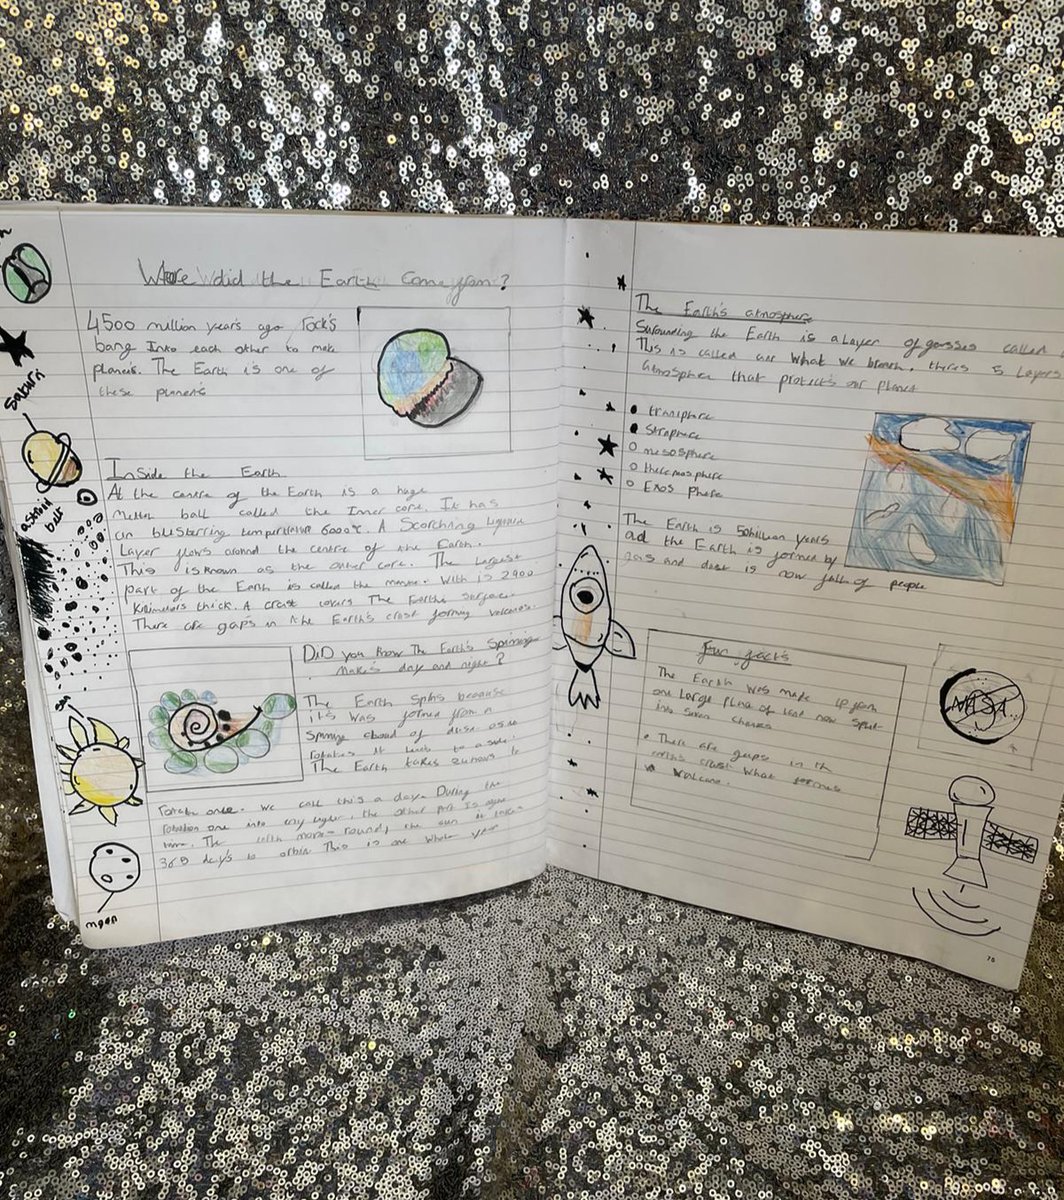 Where did the Earth Come from?
4500 million year's ago, rock's
bang Into each other to make
planets. The Earth is one of
these planets
Saturn
astroid
belt
sun
moon
Inside the Earth
At the centre of the Earth is a huge
ball called the Inner core. It has
an temperature 6000°c. A Scorching
Layer flows around the centre of the Earth.
This is known as the outer core. The Largest
part of the Earth is called the With is 2900
thick. A crust covers The Earths surface.
There are gaps in the Earth's crust forming volcanos.
DiD you know The Earth's Spinning
Makes day and night?
The Earth Spins because
it's was formed from a
spinning of dust as it
rotates it to a side.
The Earth takes
rotate once. We call this a day. During the
rotation one into , the other part is
The earth round, the sun it takes
365 day's to orbit This is one whole year
The Earth's atmosphere
Surounding the Earth is a Layer of gasses called
This is called air What we breath. theres 5 Layers
that protect's our planet
mesosphere
Exos Phere
The Earth is years
the Earth is formed by
gas and dust is now full of people
Fun fact's
The Earth was made up from
one Large of land now
into Seven
There are gaps in th
earths crust What formes
Volcano.
NASA